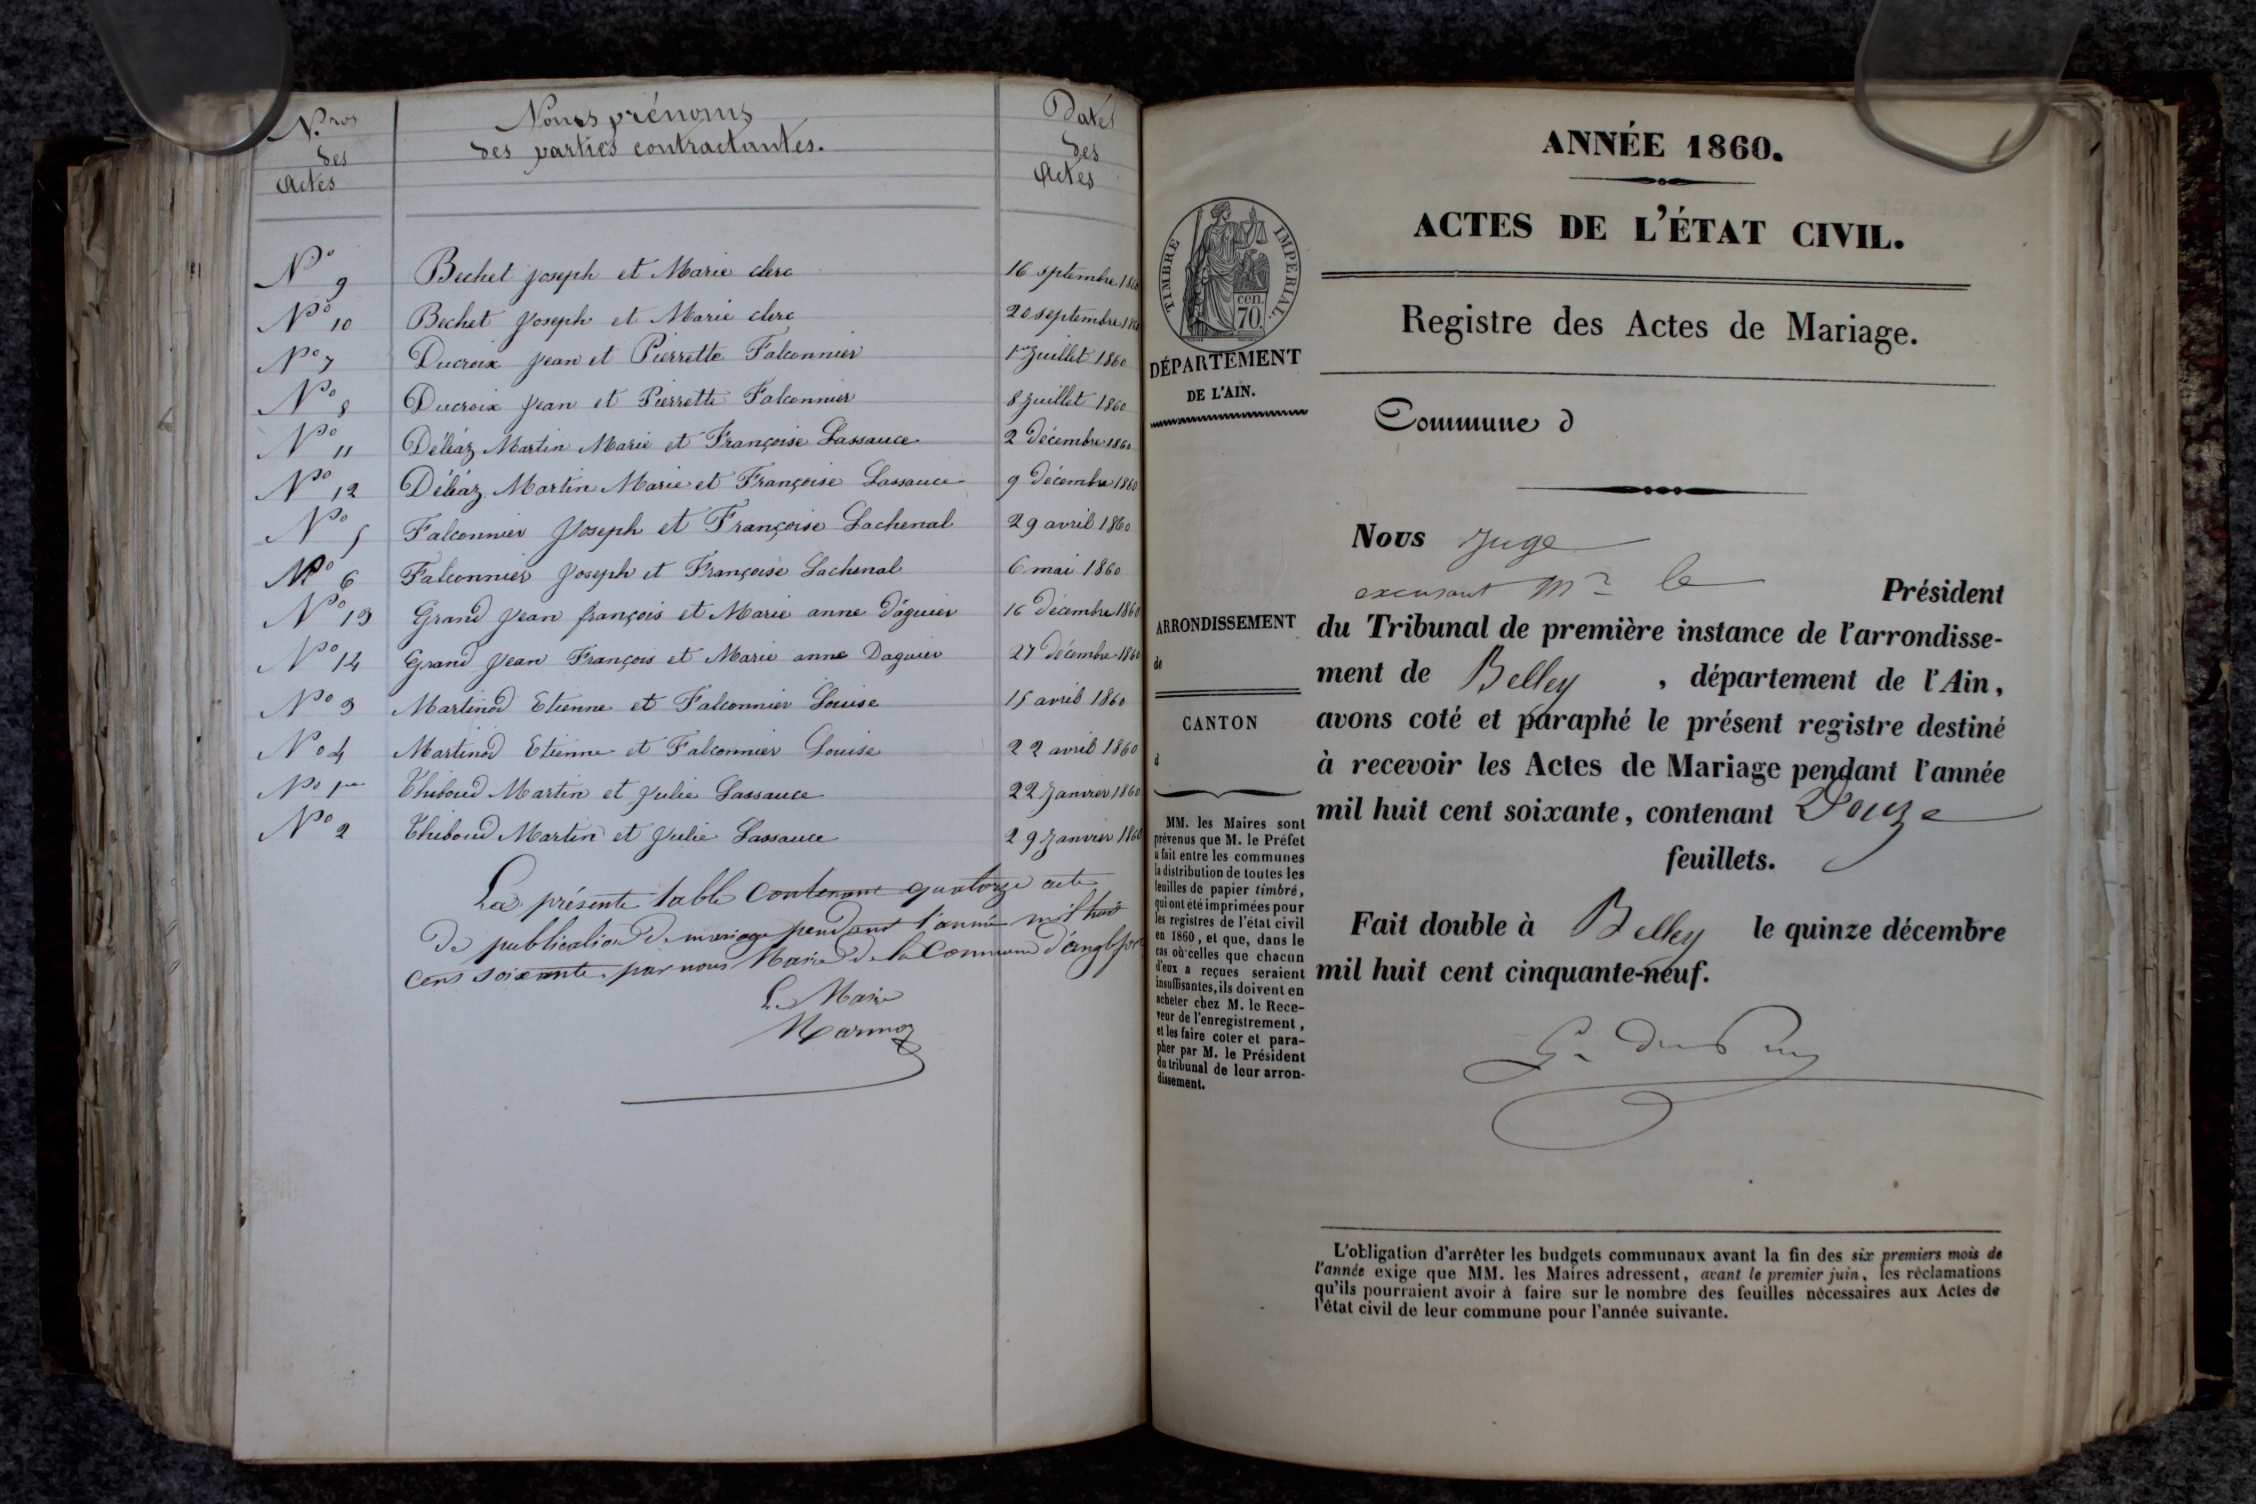 N.ros
des
Actes
Noms prénoms
des parties contractantes.
Dates
des
Actes
No 9 Bechet joseph et Marie clerc 16 septembre 1860
No 10 Bechet Joseph et Marie clerc 20 septembre 1860
No 7 Ducroix Jean et Pierrette Falconnier 1er Juillet 1860
No 8 Ducroix Jean et Pierrette Falconnier 8 Juillet 1860
No 11 Déléaz Martin Marie et Françoise Lassauce 2 Décembre 1860
No 12 Déléaz Martin Marie et Françoise Lassauce 9 Décembre 1860
No 5 Falconnier Joseph et Françoise Lachenal 29 avril 1860
No 6 Falconnier Joseph et Françoise Lachenal 6 mai 1860
No 13 Grand Jean françois et Marie anne Daguier 16 Décembre 1860
No 14 Grand Jean François et Marie anne Daguier 27 Décembre 1860
No 3 Martinod Etienne et Falconnier Louise 15 avril 1860
No 4 Martinod Etienne et Falconnier Louise 22 avril 1860
No 1er Thiboud Martin et Julie Lassauce 22 Janvier 1860
No 2 Thiboud Martin et Julie Lassauce 29 Janvier 1860
La présente table contenant quatorze acte
de publication de mariage pendant l'année mil huit
cens soixante, par nous Maire de la Commune d'anglefort
Le Maire
Marmoz
1
ANNÉE 1860.
ACTES DE L'ÉTAT CIVIL.
TIMBRE IMPERIAL.
cen.
70
Registre des Actes de Mariage.
DÉPARTEMENT
DE L'AIN.
Commune d
Nous Juge
excusant Mr le Président
du Tribunal de première instance de l'arrondisse-
ment de Belley , département de l'Ain,
avons coté et paraphé le présent registre destiné
à recevoir les Actes de Mariage pendant l'année
mil huit cent soixante, contenant Douze
feuillets.
Fait double à Belley le quinze décembre
mil huit cent cinquante-neuf.
ARRONDISSEMENT
de
CANTON
d
MM. les Maires sont
prévenus que M. le Préfet
a fait entre les communes
la distribution de toutes les
feuilles de papier timbré,
qui ont été imprimées pour
les registres de l'état civil
en 1860, et que, dans le
cas où celles que chacun
d'eux a reçues seraient
insuffisantes, ils doivent en
acheter chez M. le Rece-
veur de l'enregistrement,
et les faire coter et para-
pher par M. le Président
du tribunal de leur arron-
dissement.
L'obligation d'arrêter les budgets communaux avant la fin des six premiers mois de
l'année exige que MM. les Maires adressent, avant le premier juin, les réclamations
qu'ils pourraient avoir à faire sur le nombre des feuilles nécessaires aux Actes de
l'état civil de leur commune pour l'année suivante.